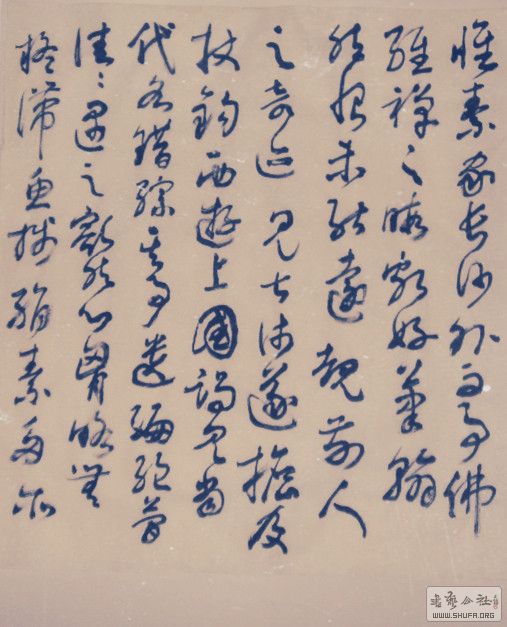 懷素家長沙幼而事佛
經禪之暇頗好筆翰
然恨未能遠覩前人
之奇迹見甚淺遂擔笈
杖錫西遊上國謁見當
代名錯綜其事遺編絕簡
往〻遇之豁然心胸略無
疑滯魚牋絹素多所
書藝公社
WWW.SHUFA.ORG